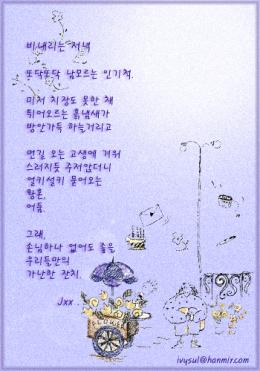 비내리는 저녁
또닥또닥 남모르는 인기척.
미처 치장도 못한 채
튀어오르는 흙냄새가
방안가득 하늘거리고
먼길 오는 고생에 겨워
스러지듯 주저앉더니
얼키설키 물어오는
황혼,
어둠.
그래,
손님하나 없어도 좋을
우리들만의
가난한 잔치.
Jxx..
FLOWER
ivysul@hanmir.com